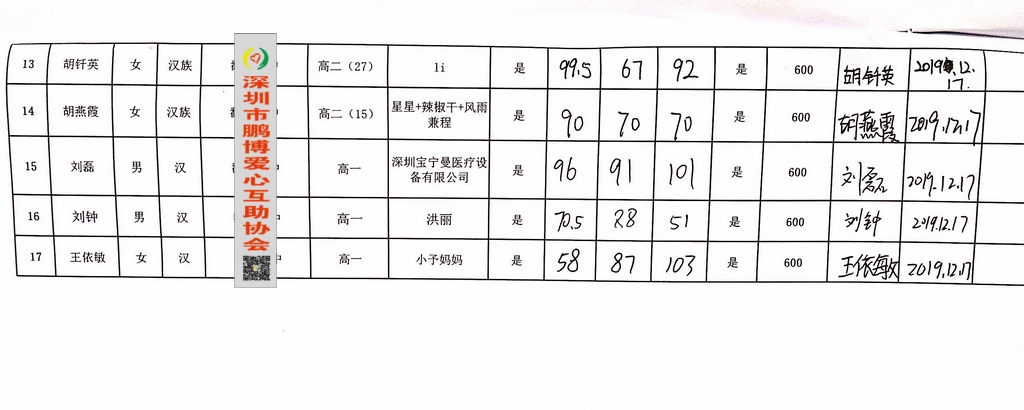 13 胡钎英 女 汉族 高二（27） li 是 99.5 67 92 是 600 胡钎英 2019.12.17.
14 胡燕霞 女 汉族 高二（15） 星星+辣椒干+风雨兼程 是 90 70 70 是 600 胡燕霞 2019.12.17
15 刘磊 男 汉 高一 深圳宝宁曼医疗设备有限公司 是 96 91 101 是 600 刘磊 2019.12.17
16 刘钟 男 汉 高一 洪丽 是 70.5 28 51 是 600 刘钟 2019.12.17
17 王依敏 女 汉 中 高一 小予妈妈 是 58 87 103 是 600 王依敏 2019.12.17
深圳市鹏博爱心互助协会